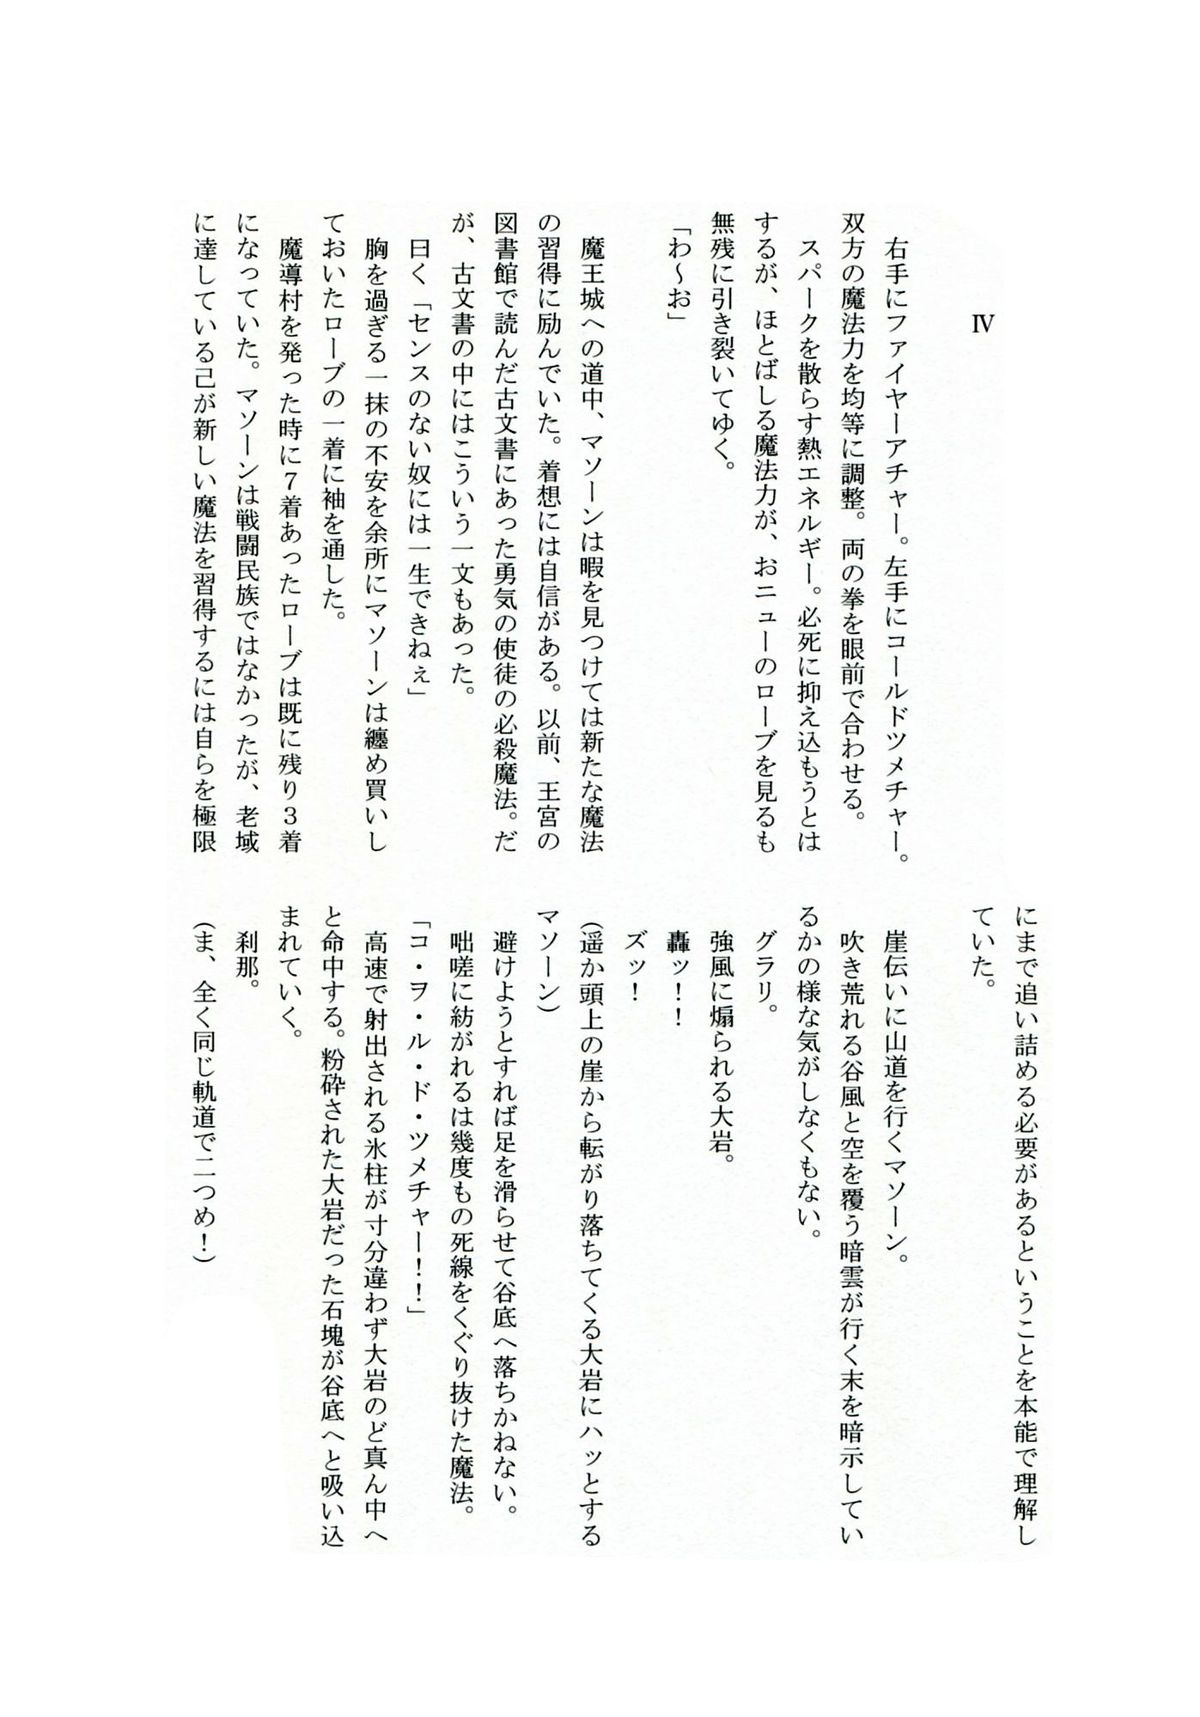 Ⅳ
右手にファイヤーアチャー。左手にコールドツメチャー。
双方の魔法力を均等に調整。両の拳を眼前で合わせる。
スパークを散らす熱エネルギー。必死に抑え込もうとは
するが、ほとばしる魔法力が、おニューのローブを見るも
無残に引き裂いてゆく。
「わ～お」
魔王城への道中、マソーンは暇を見つけては新たな魔法
の習得に励んでいた。着想には自信がある。以前、王宮の
図書館で読んだ古文書にあった勇気の使徒の必殺魔法。だ
が、古文書の中にはこういう一文もあった。
曰く「センスのない奴には一生できねぇ」
胸を過ぎる一抹の不安を余所にマソーンは纏め買いし
ておいたローブの一着に袖を通した。
魔導村を発った時に７着あったローブは既に残り３着
になっていた。マソーンは戦闘民族ではなかったが、老域
に達している己が新しい魔法を習得するには自らを極限
にまで追い詰める必要があるということを本能で理解し
ていた。
崖伝いに山道を行くマソーン。
吹き荒れる谷風と空を覆う暗雲が行く末を暗示してい
るかの様な気がしなくもない。
グラリ。
強風に煽られる大岩。
轟ッ！！
ズッ！
（遥か頭上の崖から転がり落ちてくる大岩にハッとする
マソーン）
避けようとすれば足を滑らせて谷底へ落ちかねない。
咄嗟に紡がれるは幾度もの死線をくぐり抜けた魔法。
「コ・ヲ・ル・ド・ツメチャー！！」
高速で射出される氷柱が寸分違わず大岩のど真ん中へ
と命中する。粉砕された大岩だった石塊が谷底へと吸い込
まれていく。
刹那。
（ま、全く同じ軌道で二つめ！）